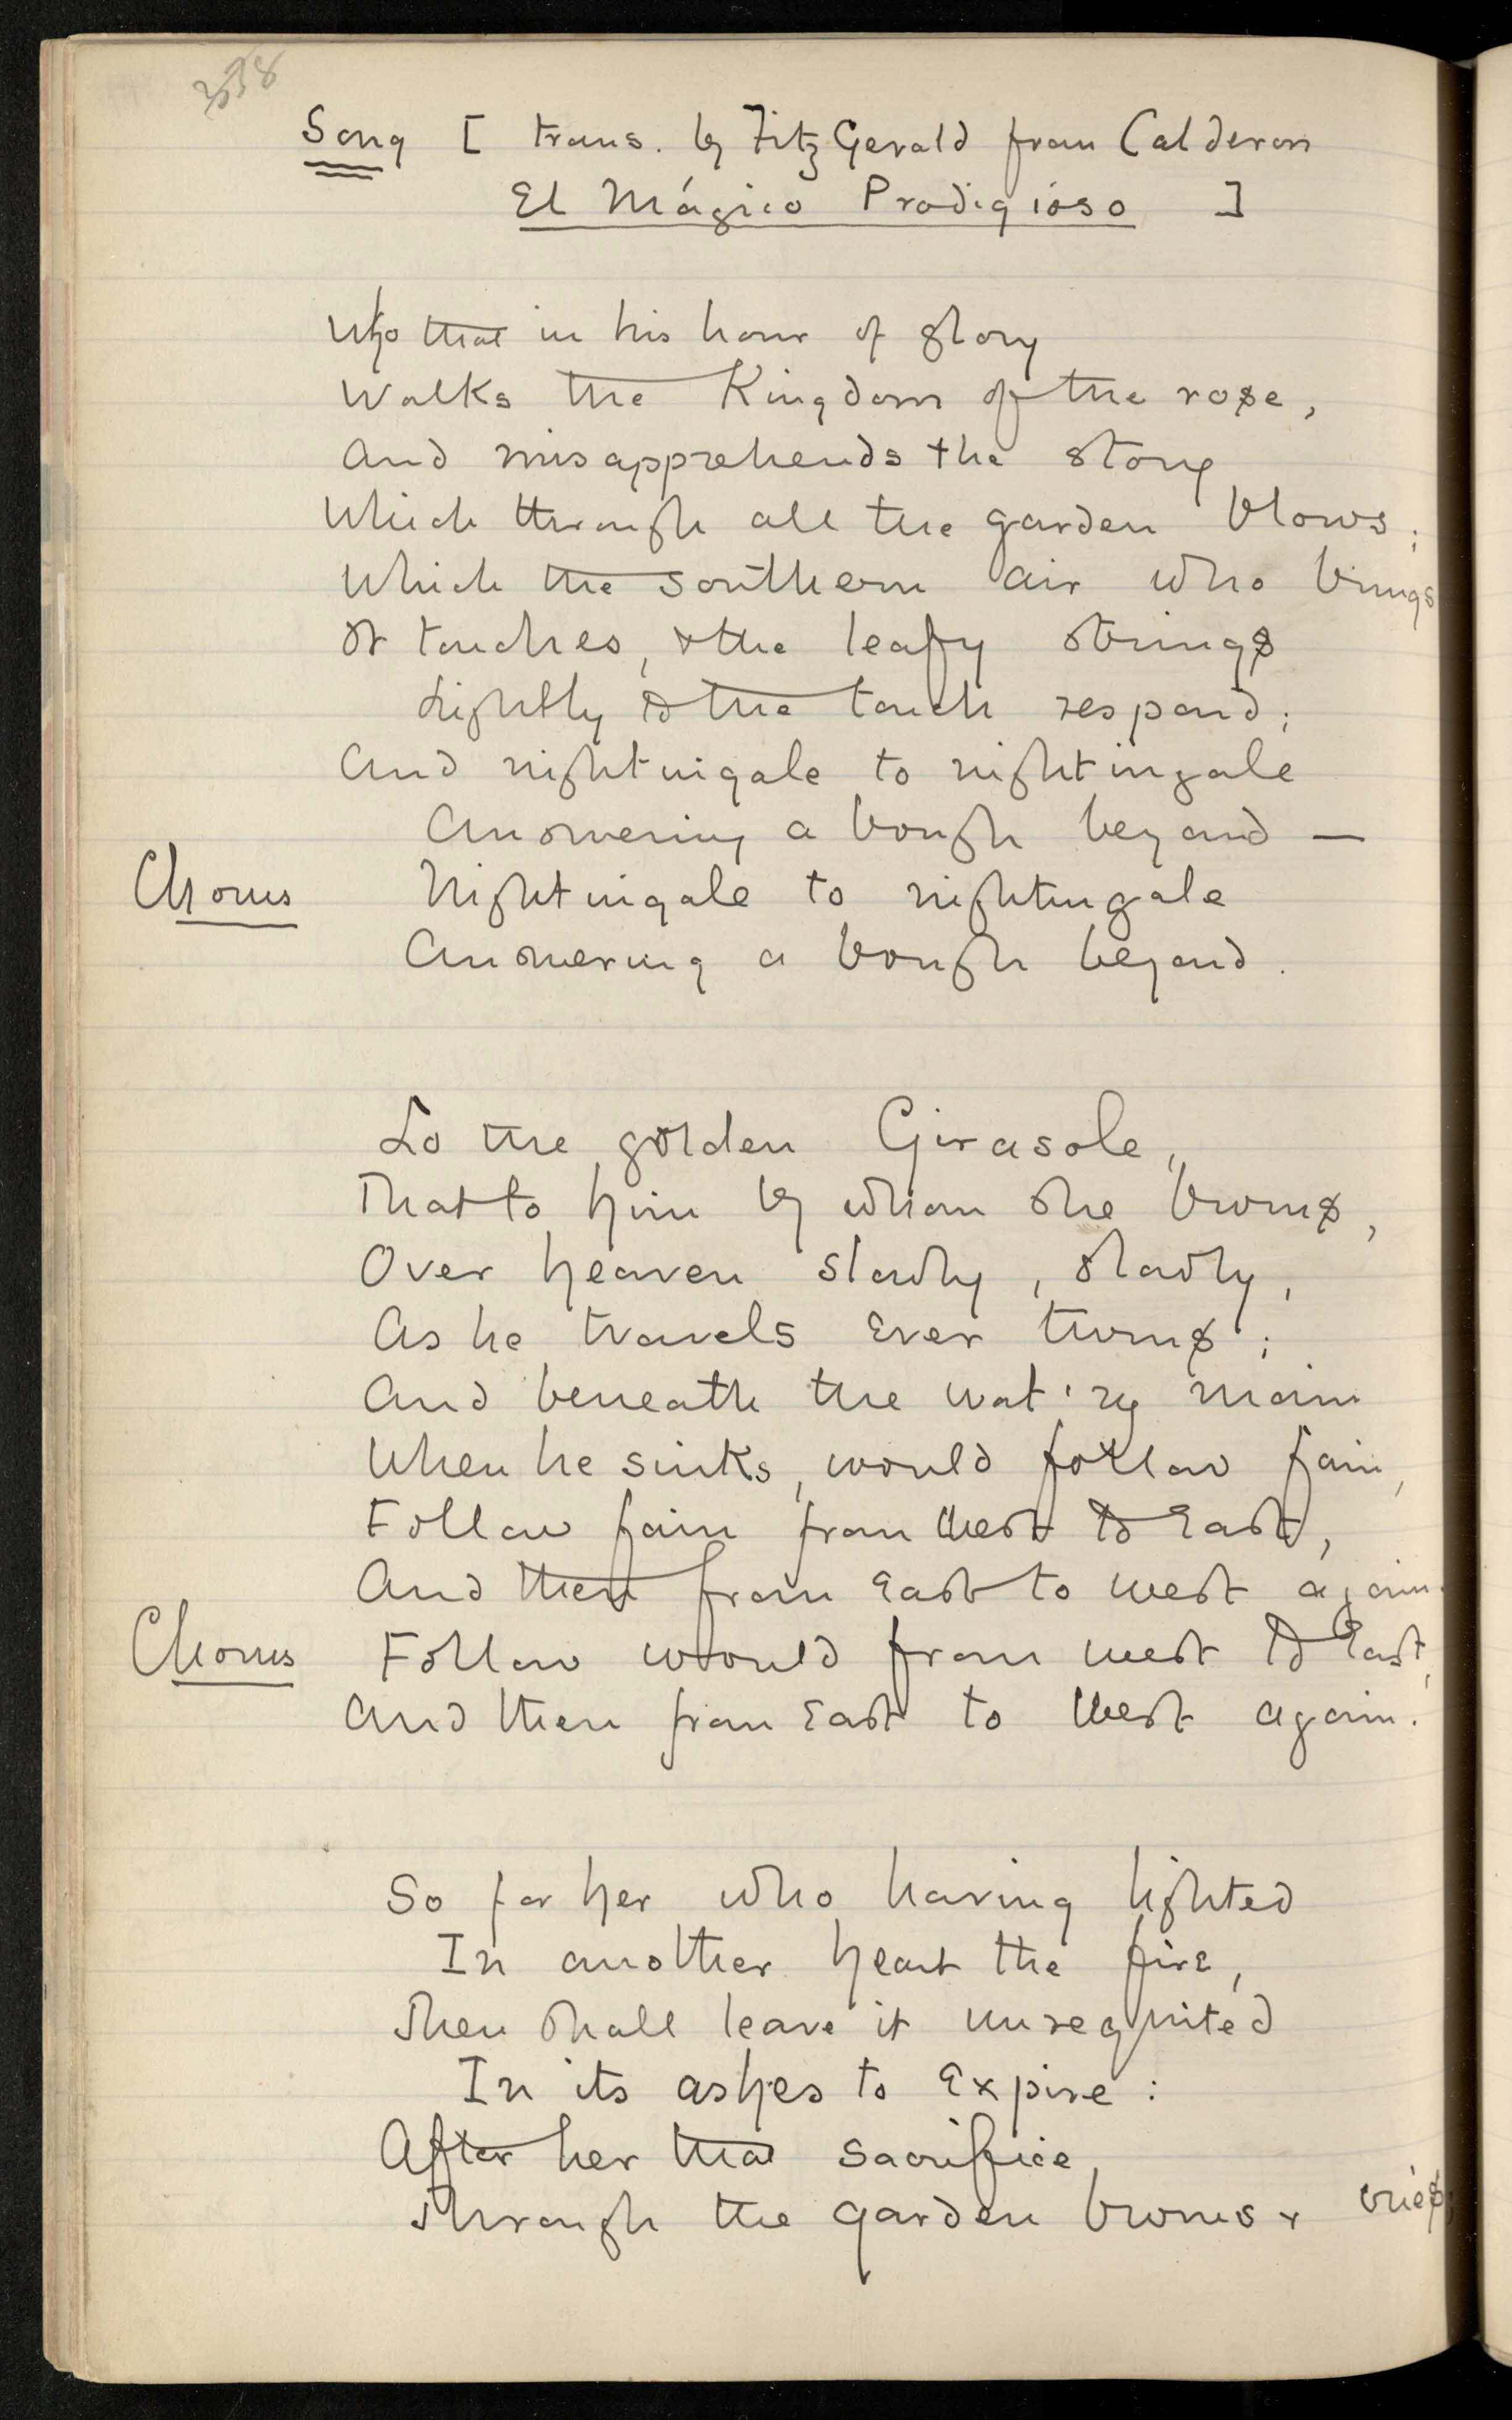 338
Song [ trans. by FitzGerald from Calderon
El Mágico Prodigioso ]
Who that in his hour of glory
Walks the Kingdom of the rose,
And misapprehends the story
Which through all the garden blows;
Which the southern air who brings
It touches, & the leafy strings
Lightly to the touch respond;
And nightingale to nightingale
Answering a bough beyond —
Chorus Nightingale to nightingale
Answering a bough beyond.
Lo the golden Girasole,
That to him by whom she burns,
Over heaven slowly, slowly,
As he travels ever turns;
And beneath the wat'ry main
When he sinks, would follow fain,
Follow fain from West to East,
And then from East to West again.
Chorus Follow would from West to East,
And then from East to West again.
So for her who having lighted
In another heart the fire,
Then shall leave it unrequited
In its ashes to expire:
After her that sacrifice
Through the garden burns & cries;